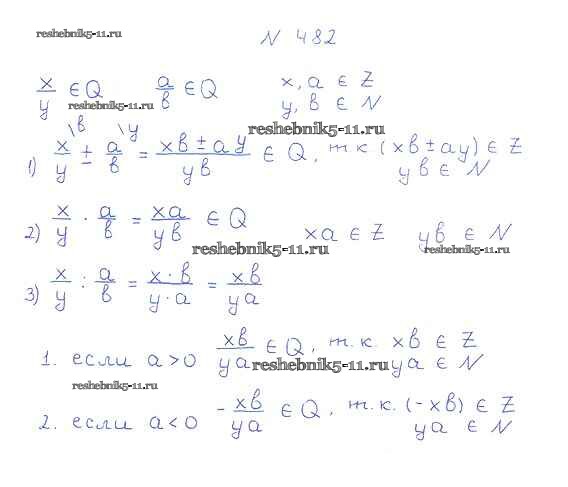 reshebnik5-11.ru
N 482
x/y ∈ Q a/в ∈ Q x, a ∈ Z
reshebnik5-11.ru y, в ∈ N
reshebnik5-11.ru
1) x/y \в ± a/в \y = xв ± ay/yв ∈ Q, т к (xв ± ay) ∈ Z
yв ∈ N
2) x/y · a/в = xa/yв ∈ Q xa ∈ Z yв ∈ N
reshebnik5-11.ru reshebnik5-11.ru
3) x/y : a/в = x · в/y · a = xв/ya
1. если a > 0 xв/ya ∈ Q, т.к. xв ∈ Z
reshebnik5-11.ru ya ∈ N
reshebnik5-11.ru
2. если a < 0 - xв/ya ∈ Q, т.к. (-xв) ∈ Z
ya ∈ N